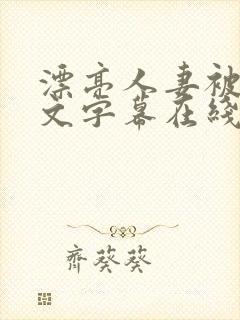 漂亮人妻被
文字幕在线
齊葵葵